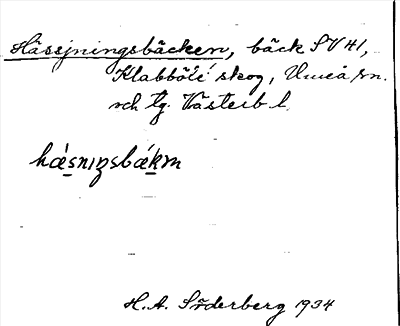 Hässjningsbäcken, bäck SV 41,
Klabböle skog, Umeå sn.
och tg. Västerb l.
hǽsnɩŋsbákm
H.A. Söderberg 1934